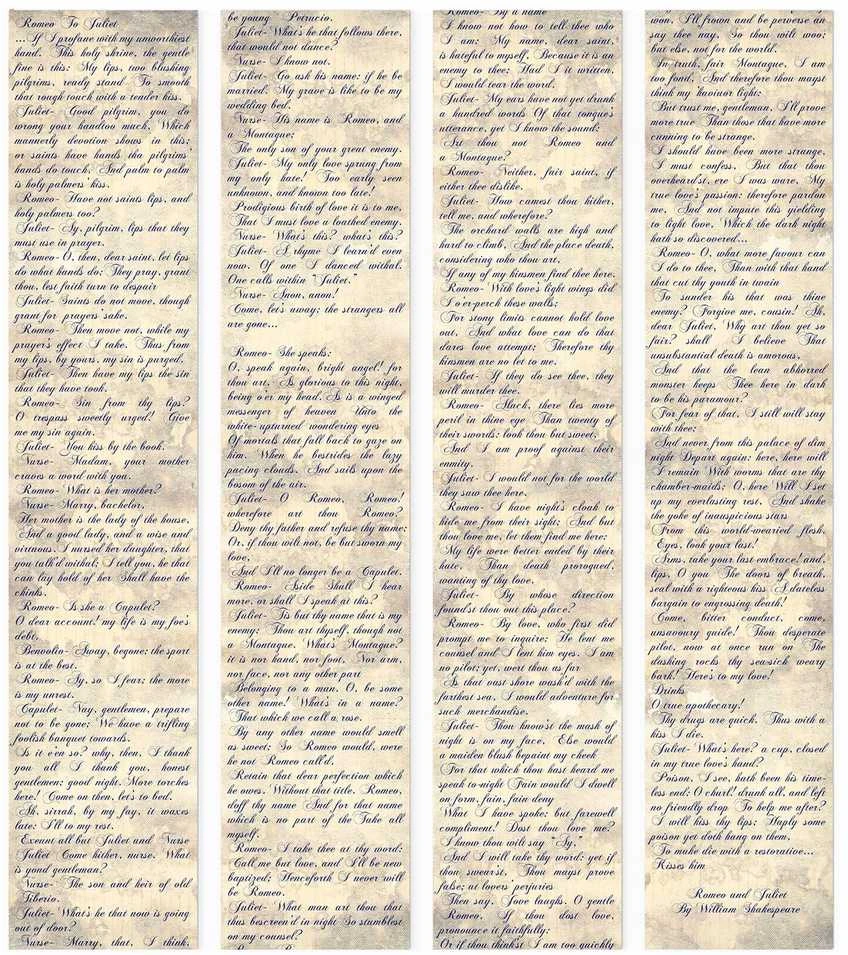 Romeo To Juliet
... If I profane with my unworthiest
hand. This holy shrine, the gentle
fine is this: My lips, two blushing
pilgrims, ready stand To smooth
that rough touch with a tender kiss.
Juliet- Good pilgrim, you do
wrong your hand too much, Which
mannerly devotion shows in this;
or saints have hands tha pilgrims'
hands do touch, And palm to palm
is holy palmers' kiss.
Romeo- Have not saints lips, and
holy palmers too?
Juliet- Ay, pilgrim, lips that they
must use in prayer.
Romeo- O, then, dear saint, let lips
do what hands do; They pray, grant
thou, lest faith turn to despair
Juliet- Saints do not move, though
grant for prayers' sake.
Romeo- Then move not, while my
prayer's effect I take. Thus from
my lips, by yours, my sin is purged.
Juliet- Then have my lips the sin
that they have took.
Romeo- Sin from thy lips?
O trespass sweetly urged! Give
me my sin again.
Juliet- You kiss by the book.
Nurse- Madam, your mother
craves a word with you.
Romeo- What is her mother?
Nurse- Marry, bachelor,
Her mother is the lady of the house,
And a good lady, and a wise and
virtuous, I nursed her daughter, that
you talk'd withal; I tell you, he that
can lay hold of her Shall have the
chinks.
Romeo- Is she a Capulet?
O dear account! my life is my foe's
debt.
Benvolio- Away, begone; the sport
is at the best.
Romeo- Ay, so I fear; the more
is my unrest.
Capulet- Nay, gentlemen, prepare
not to be gone; We have a trifling
foolish banquet towards.
Is it e'en so? why, then, I thank
you all I thank you, honest
gentlemen; good night. More torches
here! Come on then, let's to bed.
Ah, sirrah, by my fay, it waxes
late: I'll to my rest.
Exeunt all but Juliet and Nurse
Juliet Come hither, nurse. What
is yond gentleman?
Nurse- The son and heir of old
Tiberio.
Juliet- What's he that now is going
out of door?
Nurse- Marry, that, I think,
be young Petrucio.
Juliet- What's he that follows there,
that would not dance?
Nurse- I know not.
Juliet- Go ask his name: if he be
married. My grave is like to be my
wedding bed.
Nurse- His name is Romeo, and
a Montague;
The only son of your great enemy.
Juliet- My only love sprung from
my only hate! Too early seen
unknown, and known too late!
Prodigious birth of love it is to me,
That I must love a loathed enemy.
Nurse- What's this? what's this?
Juliet- A rhyme I learn'd even
now. Of one I danced withal.
One calls within "Juliet."
Nurse- Anon, anon!
Come, let's away; the strangers all
are gone...
Romeo- She speaks:
O, speak again, bright angel! for
thou art, As glorious to this night,
being o'er my head, As is a winged
messenger of heaven Unto the
white-upturned wondering eyes
Of mortals that fall back to gaze on
him, When he bestrides the lazy
pacing clouds, And sails upon the
bosom of the air.
Juliet- O Romeo, Romeo!
wherefore art thou Romeo?
Deny thy father and refuse thy name;
Or, if thou wilt not, be but sworn my
love,
And I'll no longer be a Capulet.
Romeo- Aside Shall I hear
more, or shall I speak at this?
Juliet- Tis but thy name that is my
enemy; Thou art thyself, though not
a Montague. What's Montague?
it is nor hand, nor foot, Nor arm,
nor face, nor any other part
Belonging to a man. O, be some
other name! What's in a name?
That which we call a rose,
By any other name would smell
as sweet; So Romeo would, were
he not Romeo call'd,
Retain that dear perfection which
he owes, Without that title. Romeo,
doff thy name And for that name
which is no part of the Take all
myself.
Romeo- I take thee at thy word:
Call me but love, and I'll be new
baptized; Henceforth I never will
be Romeo.
Juliet- What man art thou that
thus bescreen'd in night So stumblest
on my counsel?
Romeo- By a name
I know not how to tell thee who
I am: My name, dear saint,
is hateful to myself, Because it is an
enemy to thee; Had I it written,
I would tear the word.
Juliet- My ears have not yet drunk
a hundred words Of that tongue's
utterance, yet I know the sound:
Art thou not Romeo and
a Montague?
Romeo- Neither, fair saint, if
either thee dislike.
Juliet- How camest thou hither,
tell me, and wherefore?
The orchard walls are high and
hard to climb, And the place death,
considering who thou art,
If any of my kinsmen find thee here.
Romeo- With love's light wings did
I o'er-perch these walls;
For stony limits cannot hold love
out, And what love can do that
dares love attempt; Therefore thy
kinsmen are no let to me.
Juliet- If they do see thee, they
will murder thee.
Romeo- Alack, there lies more
peril in thine eye Than twenty of
their swords: look thou but sweet,
And I am proof against their
enmity.
Juliet- I would not for the world
they saw thee here.
Romeo- I have night's cloak to
hide me from their sight; And but
thou love me, let them find me here:
My life were better ended by their
hate, Than death prorogued,
wanting of thy love.
Juliet- By whose direction
found'st thou out this place?
Romeo- By love, who first did
prompt me to inquire; He lent me
counsel and I lent him eyes. I am
no pilot; yet, wert thou as far
As that vast shore wash'd with the
farthest sea, I would adventure for
such merchandise.
Juliet- Thou know'st the mask of
night is on my face, Else would
a maiden blush bepaint my cheek
For that which thou hast heard me
speak to-night Fain would I dwell
on form, fain, fain deny
What I have spoke: but farewell
compliment! Dost thou love me?
I know thou will say "Ay,"
And I will take thy word: yet if
thou swear'st, Thou mayst prove
false; at lovers' perjuries
Then say, Jove laughs. O gentle
Romeo, If thou dost love,
pronounce it faithfully:
Or if thou think'st I am too quickly
won, I'll frown and be perverse an
say thee nay, So thou wilt woo;
but else, not for the world.
In truth, fair Montague, I am
too fond, And therefore thou mayst
think my 'haviour light:
But trust me, gentleman, I'll prove
more true Than those that have more
cunning to be strange.
I should have been more strange,
I must confess, But that thou
overheard'st, ere I was ware, My
true love's passion: therefore pardon
me, And not impute this yielding
to light love, Which the dark night
hath so discovered...
Romeo- O, what more favour can
I do to thee, Than with that hand
that cut thy youth in twain
To sunder his that was thine
enemy? Forgive me, cousin! Ah,
dear Juliet, Why art thou yet so
fair? shall I believe That
unsubstantial death is amorous,
And that the lean abhorred
monster keeps Thee here in dark
to be his paramour?
For fear of that, I still will stay
with thee;
And never from this palace of dim
night Depart again: here, here will
I remain With worms that are thy
chamber-maids; O, here Will I set
up my everlasting rest, And shake
the yoke of inauspicious stars
From this world-wearied flesh.
Eyes, look your last!
Arms, take your last embrace! and,
lips, O you The doors of breath,
seal with a righteous kiss A dateless
bargain to engrossing death!
Come, bitter conduct, come,
unsavoury guide! Thou desperate
pilot, now at once run on The
dashing rocks thy sea-sick weary
bark! Here's to my love!
Drinks
O true apothecary!
Thy drugs are quick. Thus with a
kiss I die.
Juliet- What's here? a cup, closed
in my true love's hand?
Poison, I see, hath been his time-
less end: O churl! drunk all, and left
no friendly drop To help me after?
I will kiss thy lips; Haply some
poison yet doth hang on them,
To make die with a restorative...
Kisses him
Romeo and Juliet
By William Shakespeare